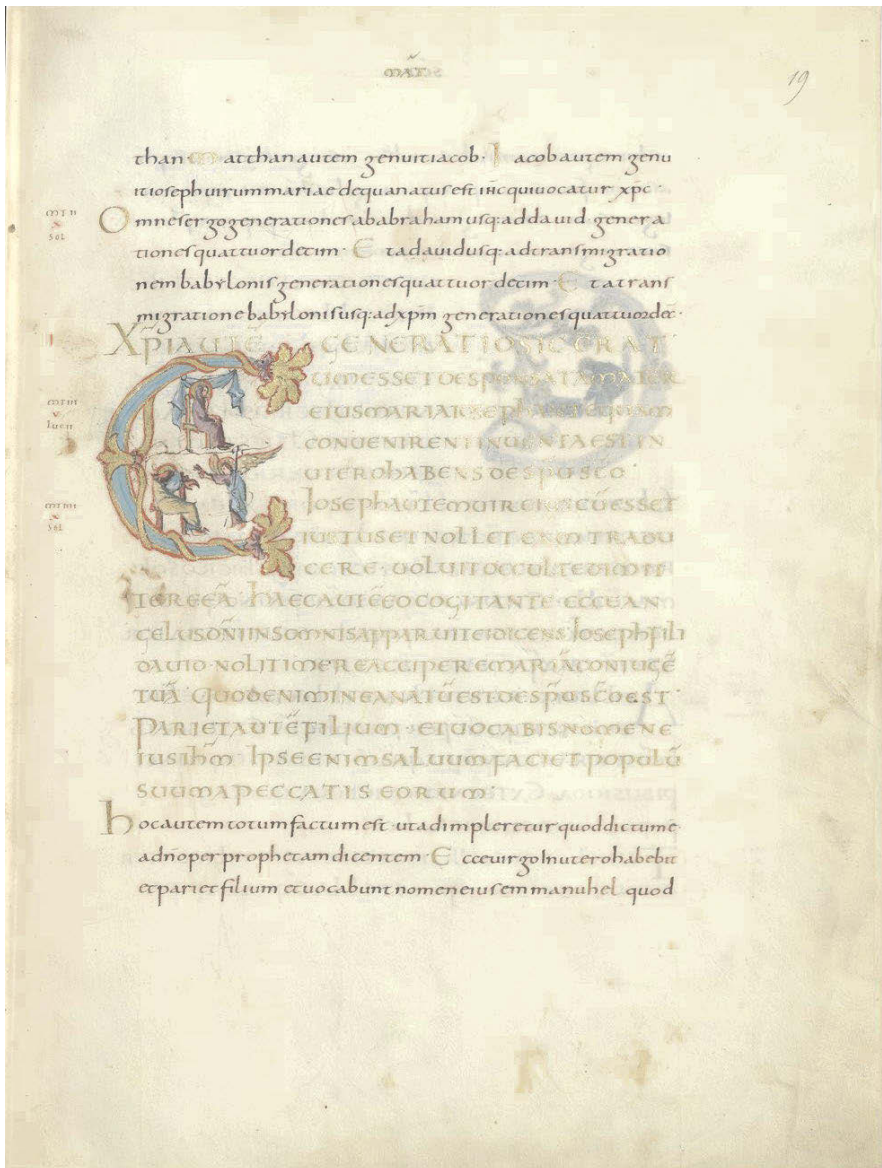 MAT
19
than Matthan autem genuit iacob. Iacob autem genu
it ioseph uirum mariae de qua natus est ihc qui uocatur xpc.
Omnes ergo generationes ab abraham usq: ad dauid genera
tiones quattuordecim. Et a dauid usq: ad transmigratio
nem babylonis generationes quattuordecim. Et a trans
migratione babylonis usq: ad xpm generationes quattuordeċ.
XPI AUTĒ GENERATIO SIC ERAT
CUM ESSET DESPONSATA MATER
EIUS MARIA IOSEPH ANTEQUAM
CONUENIRENT INUENTA EST IN
UTERO HABENS DE SPU SCO
Ioseph AUTEM UIR EIUS CŪ ESSET
IUSTUS ET NOLLET EAM TRADU
CERE. UOLUIT OCCULTE DIMIT
TERE EĀ. HAEC AUTĒ EO COGITANTE ECCE AN
GELUS DNI IN SOMNIS APPARUIT EI DICENS Ioseph FILI
DAUID. NOLI TIMERE ACCIPERE MARIĀ CONIUGĒ
TUĀ QUOD ENIM IN EA NATŪ EST DE SPU SCO EST.
PARIET AUTĒ FILIUM. ET UOCABIS NOMEN E
IUS IhM. IPSE ENIM SALUUM FACIET POPULŪ
SUUM A PECCATIS EORUM.
Hoc autem totum factum est. ut adimpleretur quod dictum ē
a dno per prophetam dicentem. Ecce uirgo In utero habebit
et pariet filium et uocabunt nomen eius emmanuhel quod